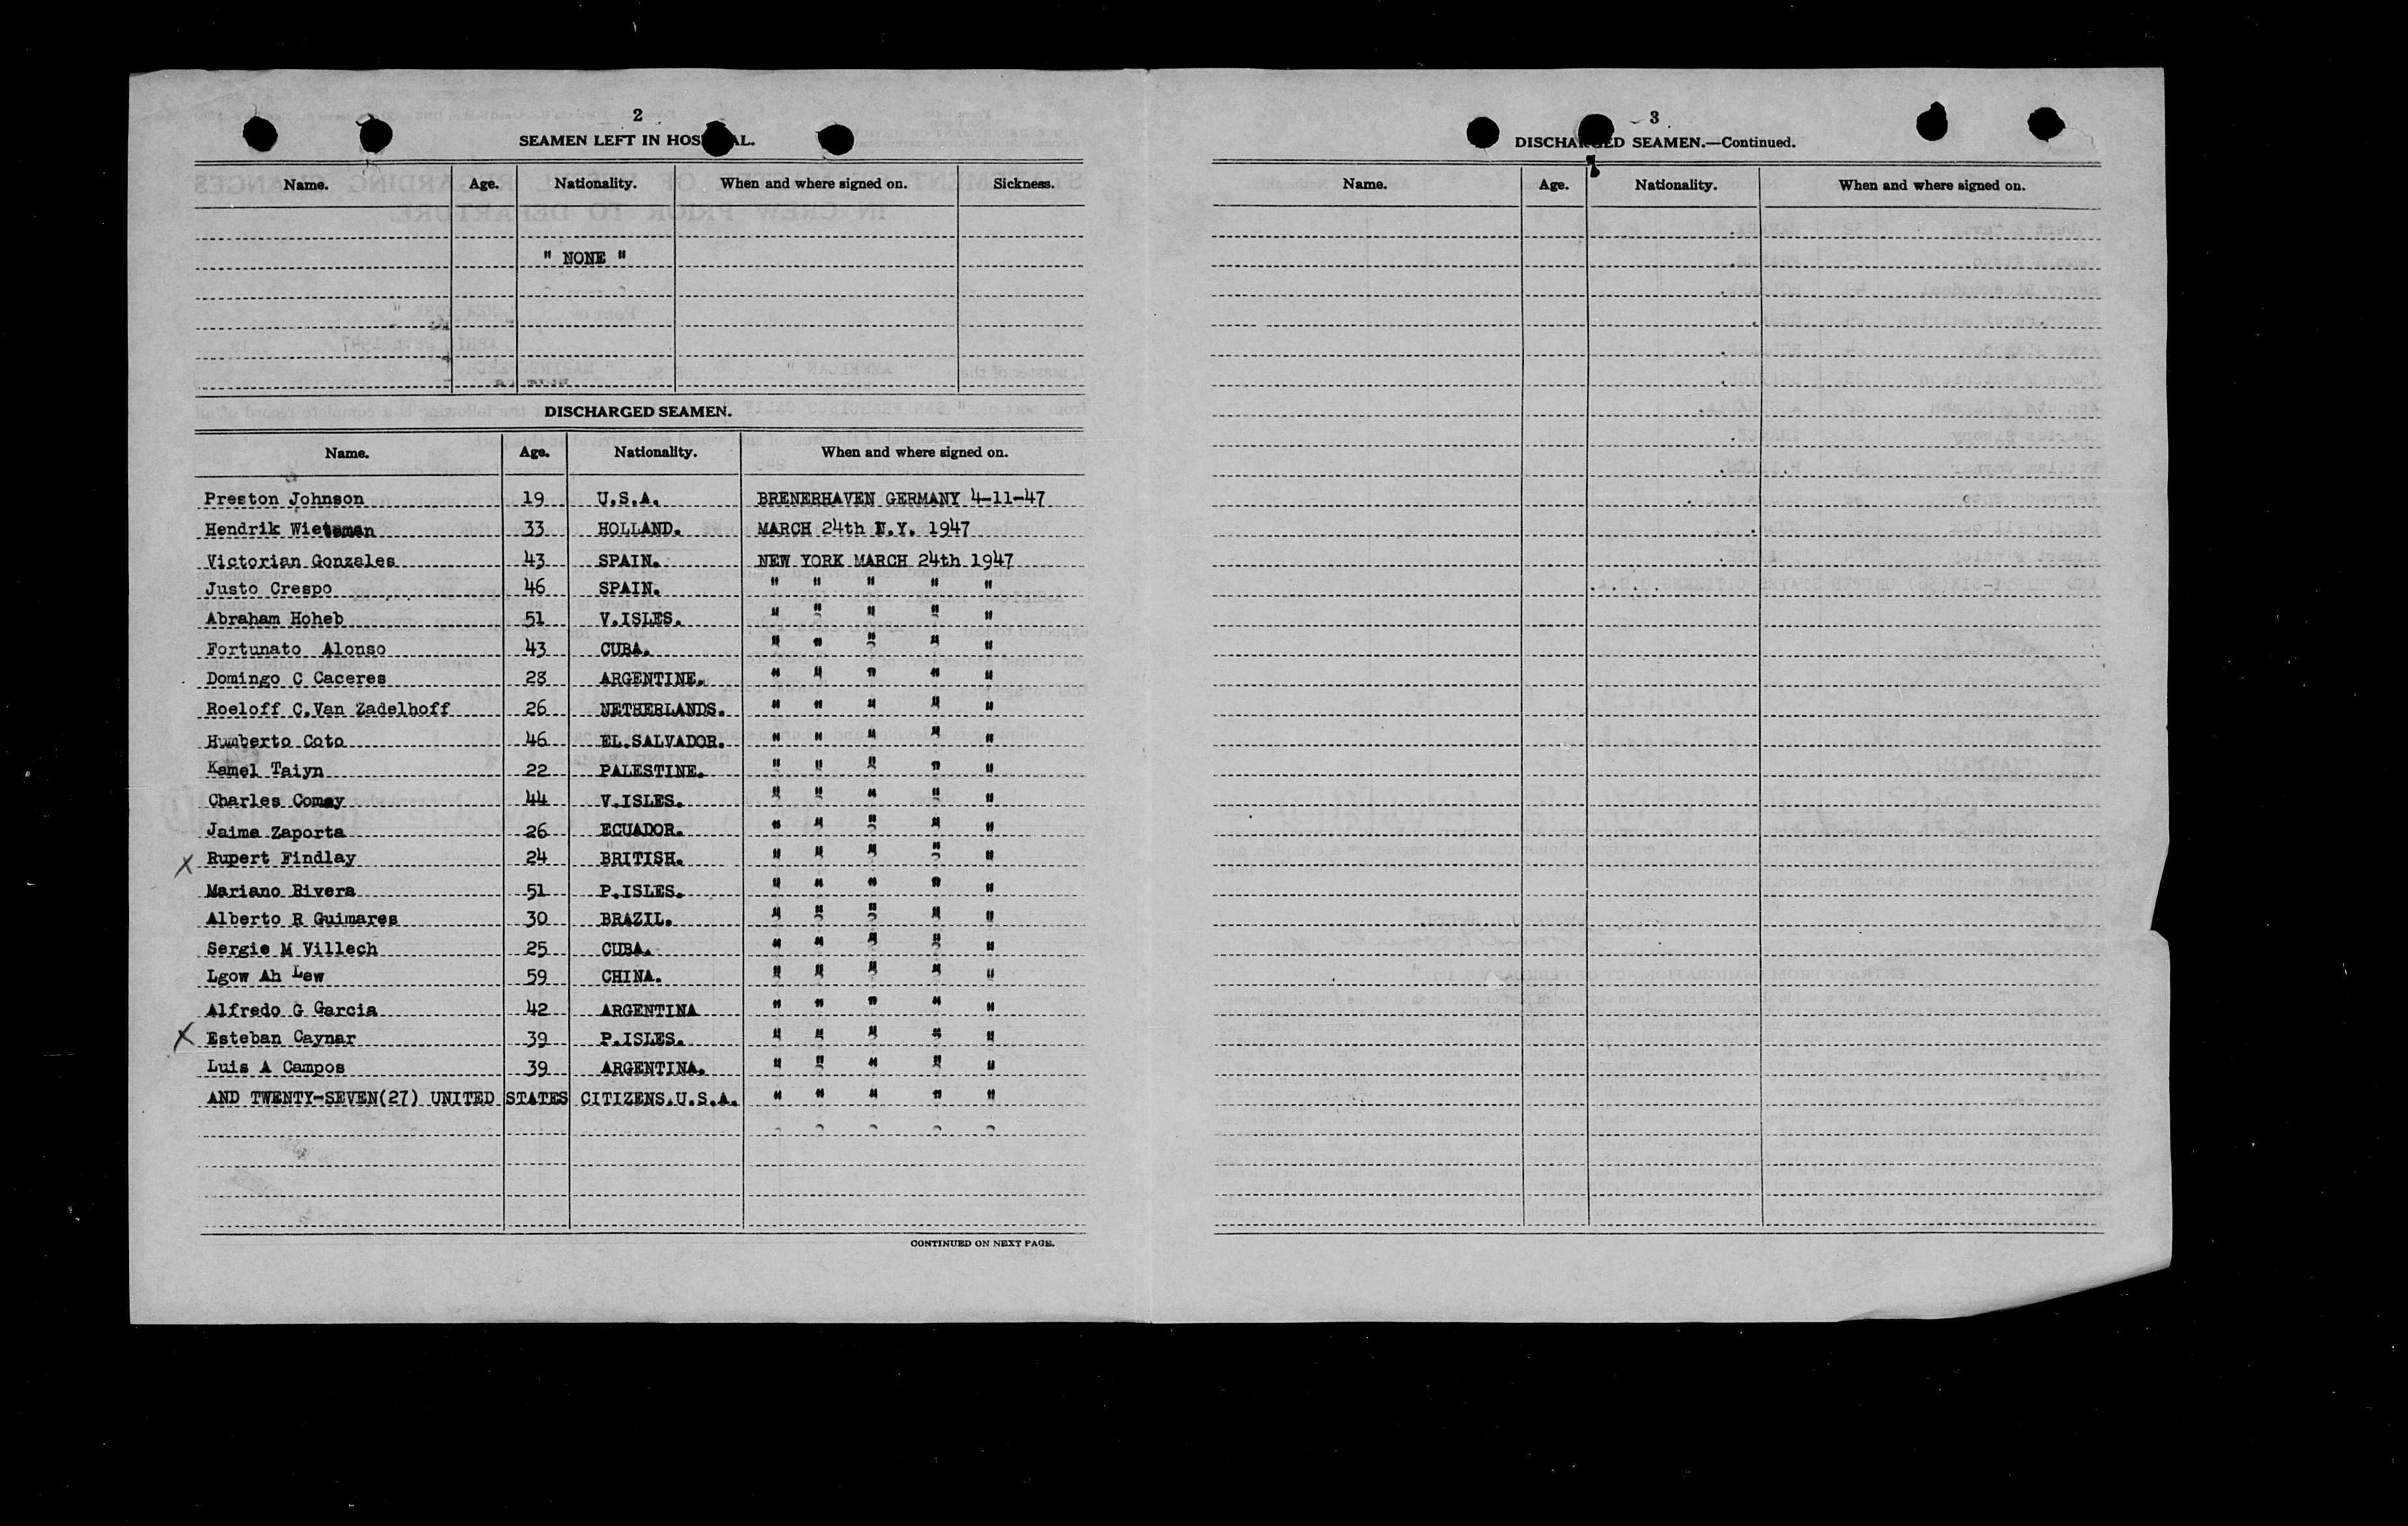 2
SEAMEN LEFT IN HOSPITAL.
Name. Age. Nationality. When and where signed on. Sickness.
" NONE "
DISCHARGED SEAMEN.
Name. Age. Nationality. When and where signed on.
Preston Johnson 19 U.S.A. BRENERHAVEN GERMANY 4-11-47
Hendrik Wieteman 33 HOLLAND. MARCH 24th N.Y. 1947
Victorian Gonzales 43 SPAIN. NEW YORK MARCH 24th 1947
Justo Crespo 46 SPAIN. " " " " "
Abraham Hoheb 51 V.ISLES. " " " " "
Fortunato Alonso 43 CUBA. " " " " "
Domingo C Caceres 28 ARGENTINE. " " " " "
Roeloff C.Van Zadelhoff 26 NETHERLANDS. " " " " "
Humberto Coto 46 EL.SALVADOR. " " " " "
Kamel Taiyn 22 PALESTINE. " " " " "
Charles Comay 44 V.ISLES. " " " " "
Jaime Zaporta 26 ECUADOR. " " " " "
X Rupert Findlay 24 BRITISH. " " " " "
Mariano Rivera 51 P.ISLES. " " " " "
Alberto R Guimares 30 BRAZIL. " " " " "
Sergie M Villech 25 CUBA. " " " " "
Lgow Ah Lew 59 CHINA. " " " " "
Alfredo G Garcia 42 ARGENTINA " " " " "
X Esteban Caynar 39 P.ISLES. " " " " "
Luis A Campos 39 ARGENTINA. " " " " "
AND TWENTY-SEVEN(27) UNITED STATES CITIZENS.U.S.A. " " " " "
CONTINUED ON NEXT PAGE.
3
DISCHARGED SEAMEN.—Continued.
Name. Age. Nationality. When and where signed on.